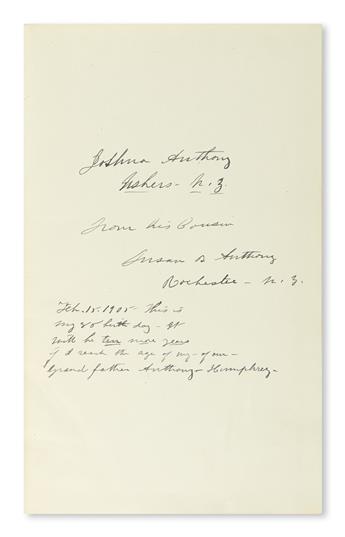 Joshua Anthony
Ushers - N. Y.
from his Cousin
Susan B Anthony
Rochester - N. Y.
Feb. 15. 1905 - This is
my 85 birth day - It
will be ten more years
if I reach the age of my - our -
Grand father Anthony - Humphrey -